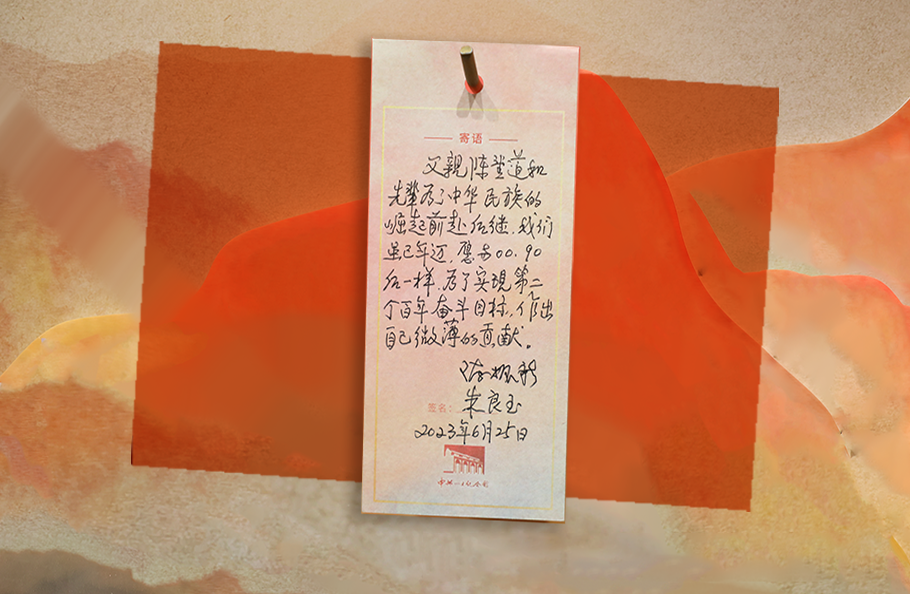 寄语
父亲陈堂道和
先辈为了中华民族的
崛起前赴后继,我们
虽已年迈,愿与00.90
后一样,为了实现第二
个百年奋斗目标,作出
自己微薄的贡献。
签名:朱良玉
2023年6月25日